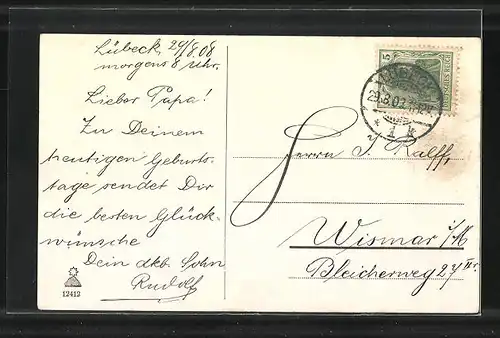 Lübeck, 29/8.08
morgens 8 Uhr.
Lieber Papa!
Zu Deinem
heutigen Geburts-
tage sendet Dir
die besten Glück-
wünsche
Dein dkb. Sohn
Rudolf
12412
5
DEUTSCHES REICH
29.8.0
* 1 *
Herrn J. Ralff,
Wismar i/M
Bleicherweg 27 IIr.